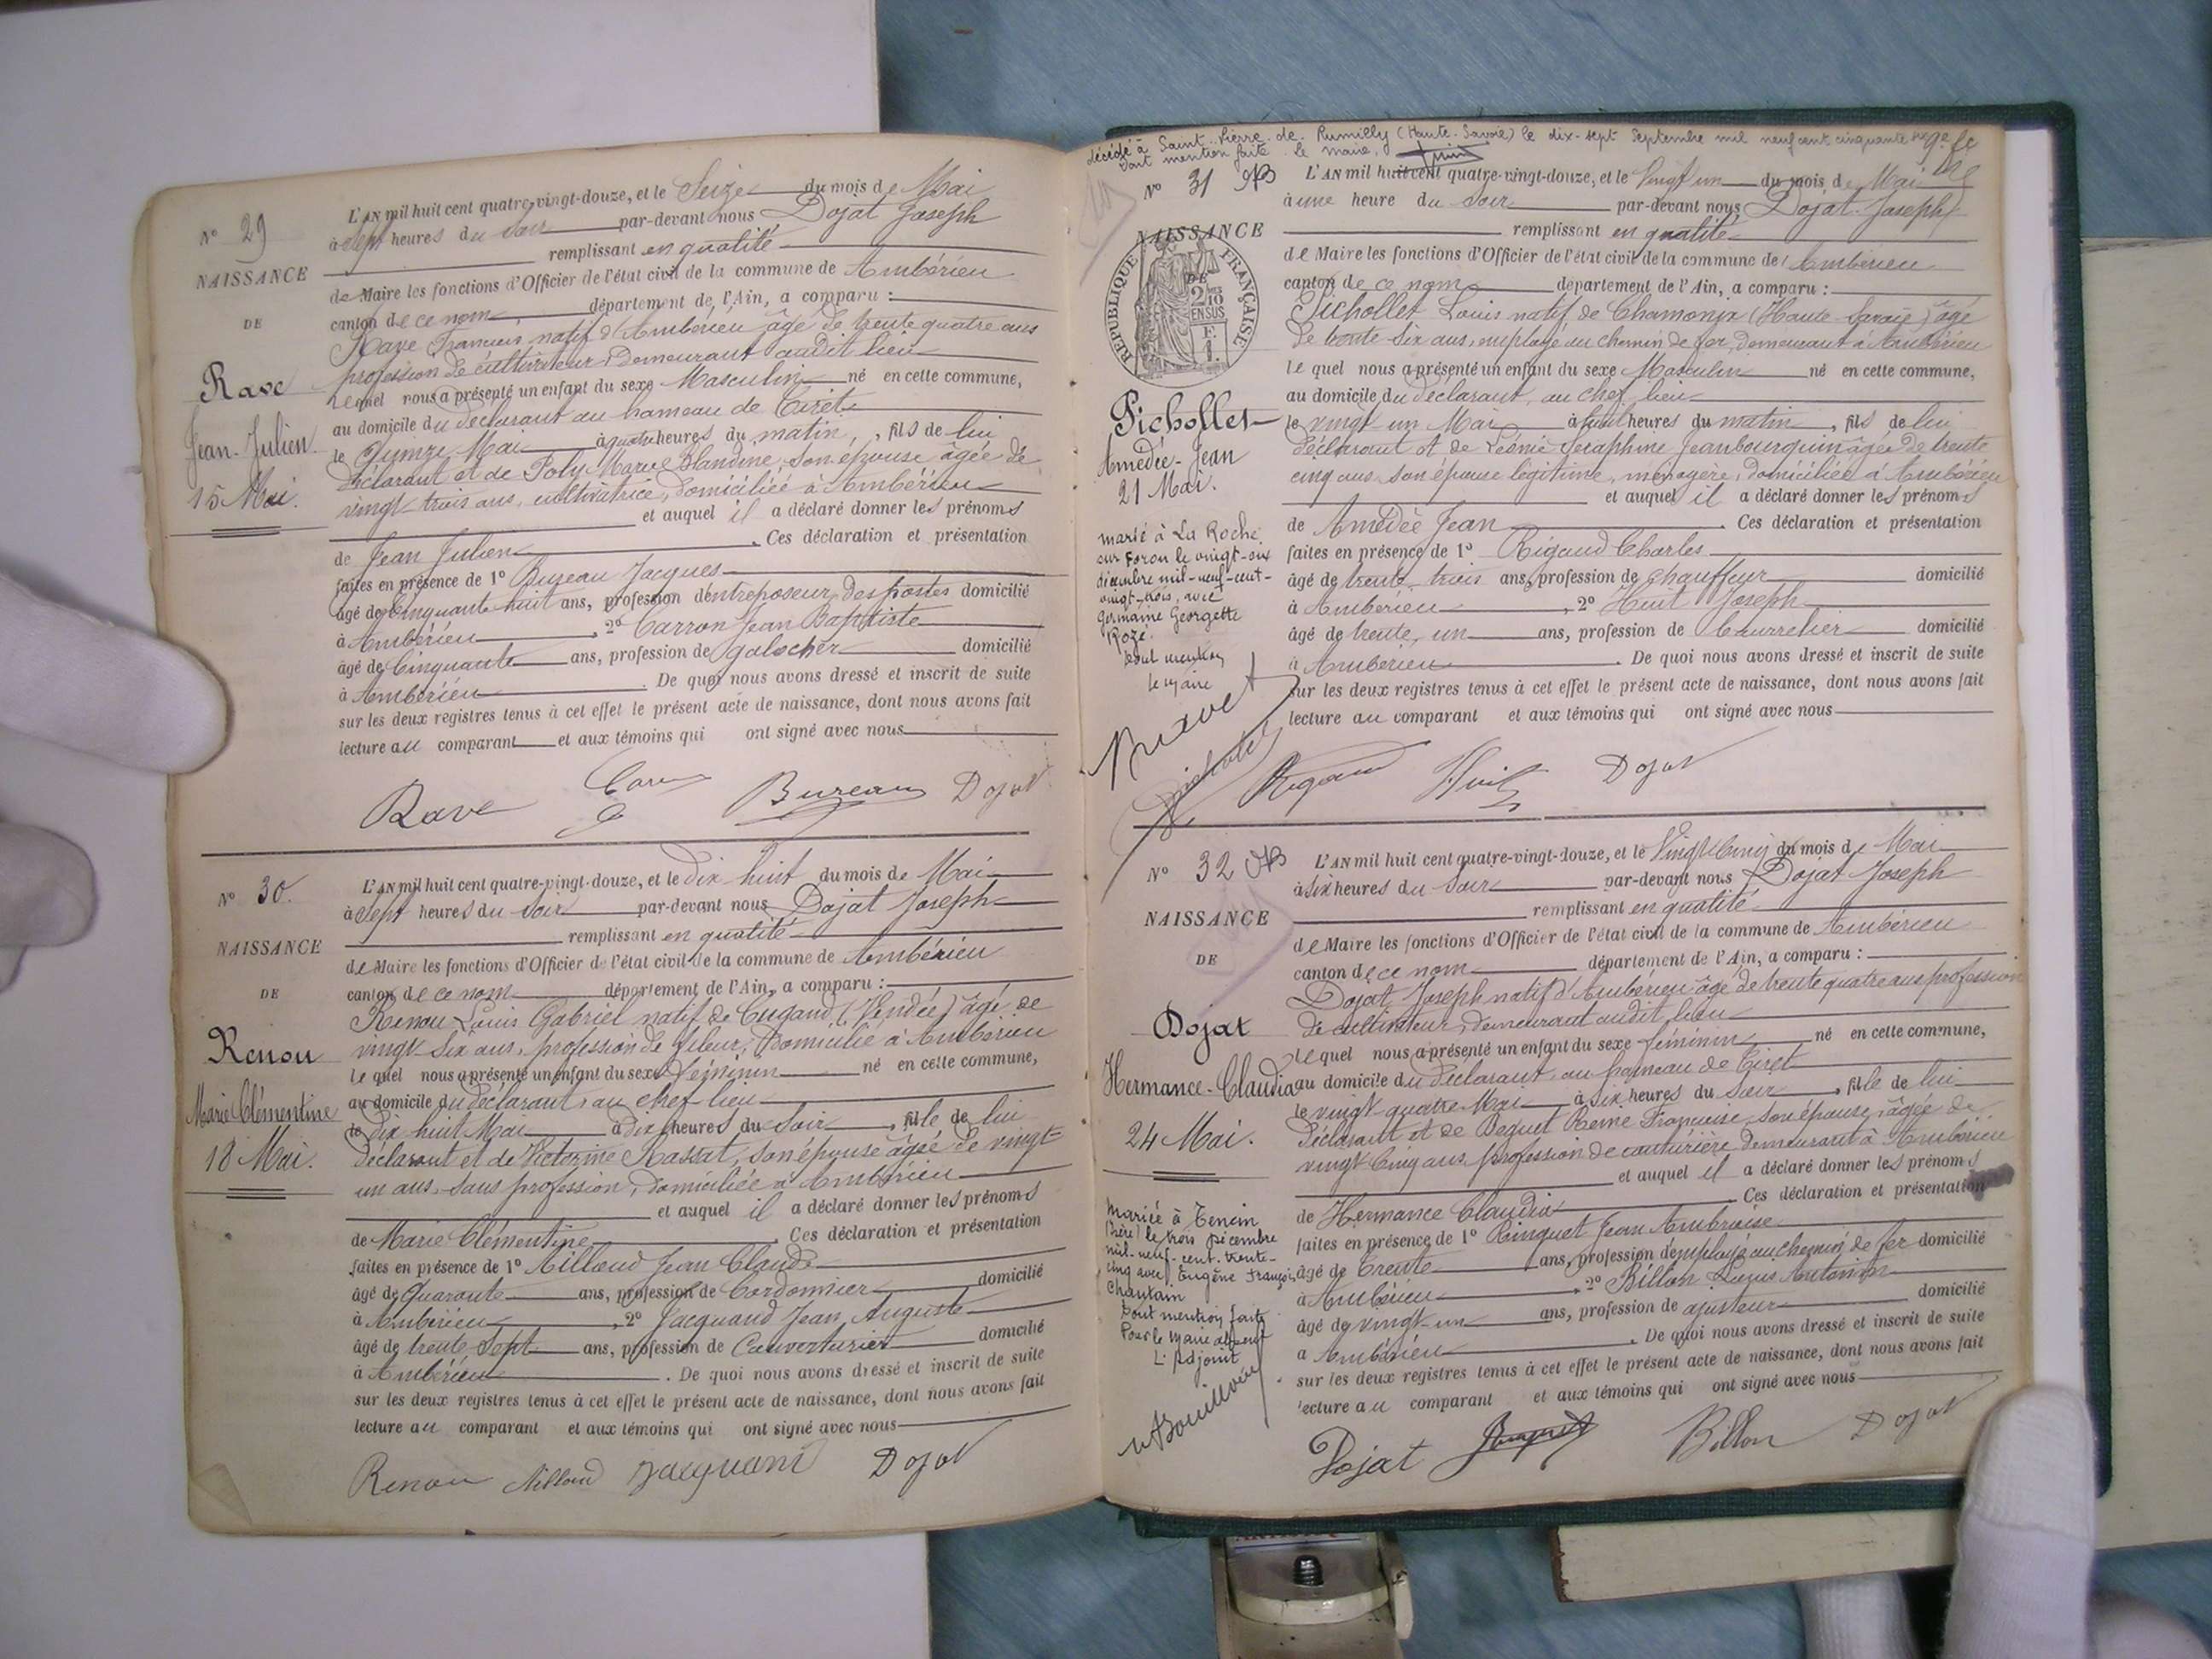 N° 29
NAISSANCE
DE
Rave
Jean-Julien
15 Mai.
L'AN mil huit cent quatre-vingt-douze, et le Seize du mois de Mai
à Sept heures du soir par-devant nous Dojat Joseph
remplissant en qualité
de Maire les fonctions d'Officier de l'état civil de la commune de Ambérieu
canton de ce nom département de l'Ain, a comparu :
Rave François natif d'Ambérieu âgé de trente quatre ans
profession de cultivateur, demeurant audit lieu
lequel nous a présenté un enfant du sexe Masculin né en cette commune,
au domicile du déclarant au hameau de Tiret
le Quinze Mai à quatre heures du matin, fils de lui
déclarant et de Poly Marie Blandine, son épouse âgée de
vingt trois ans, cultivatrice, domiciliée à Ambérieu
et auquel il a déclaré donner les prénoms
de Jean Julien. Ces déclaration et présentation
faites en présence de 1° Bureau Jacques
âgé de Cinquante huit ans, profession d'entreposeur des postes domicilié
à Ambérieu, 2° Carron Jean Baptiste
âgé de Cinquante ans, profession de galocher domicilié
à Ambérieu. De quoi nous avons dressé et inscrit de suite
sur les deux registres tenus à cet effet le présent acte de naissance, dont nous avons fait
lecture au comparant et aux témoins qui ont signé avec nous
Rave Carron Bureau Dojat
N° 30.
NAISSANCE
DE
Renou
Marie Clémentine
18 Mai.
L'AN mil huit cent quatre-vingt-douze, et le dix huit du mois de Mai
à Sept heures du soir par-devant nous Dojat Joseph
remplissant en qualité
de Maire les fonctions d'Officier de l'état civil de la commune de Ambérieu
canton de ce nom département de l'Ain, a comparu :
Renou Louis Gabriel natif de Cugand (Vendée) âgé de
vingt six ans, profession de fileur, domicilié à Ambérieu
lequel nous a présenté un enfant du sexe féminin né en cette commune,
au domicile du déclarant, au chef-lieu
le dix huit Mai à dix heures du soir, fille de lui
déclarant et de Victorine Rassat, son épouse âgée de vingt-
un ans, sans profession, domiciliée à Ambérieu
et auquel il a déclaré donner les prénoms
de Marie Clémentine. Ces déclaration et présentation
faites en présence de 1° Milloud Jean Claude
âgé de quarante ans, profession de Cordonnier domicilié
à Ambérieu, 2° Jacquand Jean Auguste
âgé de trente sept ans, profession de Couverturier domicilié
à Ambérieu. De quoi nous avons dressé et inscrit de suite
sur les deux registres tenus à cet effet le présent acte de naissance, dont nous avons fait
lecture au comparant et aux témoins qui ont signé avec nous
Renou Milloud Jacquand Dojat
décédé à Saint-Pierre-de-Rumilly (Haute-Savoie) le dix-sept Septembre mil neuf cent cinquante
Dont mention faite. Le maire,
N° 31
NAISSANCE
DE
RÉPUBLIQUE FRANÇAISE
2/10 EN SUS
Pichollet
Amédée-Jean
21 Mai.
marié à La Roche
sur Foron le vingt-six
décembre mil-neuf-cent-
vingt-trois, avec
Germaine Georgette
Roze.
Dont mention
Le Maire
L'AN mil huit cent quatre-vingt-douze, et le Vingt un du mois de Mai
à une heure du soir par-devant nous Dojat Joseph
remplissant en qualité
de Maire les fonctions d'Officier de l'état civil de la commune de Ambérieu
canton de ce nom département de l'Ain, a comparu :
Pichollet Louis natif de Chamonix (Haute-Savoie) âgé
de trente-six ans, employé au chemin de fer, demeurant à Ambérieu
lequel nous a présenté un enfant du sexe Masculin né en cette commune,
au domicile du déclarant, au chef lieu
le vingt-un Mai à huit heures du matin, fils de lui
déclarant et de Léonie Séraphine Jeanbourquin âgée de trente
cinq ans, son épouse légitime, ménagère, domiciliée à Ambérieu
et auquel il a déclaré donner les prénoms
de Amédée Jean. Ces déclaration et présentation
faites en présence de 1° Rigaud Charles
âgé de trente-trois ans, profession de chauffeur domicilié
à Ambérieu, 2° Huit Joseph
âgé de trente un ans, profession de Bourrelier domicilié
à Ambérieu. De quoi nous avons dressé et inscrit de suite
sur les deux registres tenus à cet effet le présent acte de naissance, dont nous avons fait
lecture au comparant et aux témoins qui ont signé avec nous
Pichollet Rigaud Huit Dojat
N° 32
NAISSANCE
DE
Dojat
Hermance-Claudia
24 Mai.
Mariée à Tencin
(Isère) le trois décembre
mil-neuf-cent-trente-
cinq avec Eugène François
Chantain
Dont mention faite
Pour le Maire absent
L'Adjoint
L'AN mil huit cent quatre-vingt-douze, et le Vingt Cinq du mois de Mai
à six heures du soir par-devant nous Dojat Joseph
remplissant en qualité
de Maire les fonctions d'Officier de l'état civil de la commune de Ambérieu
canton de ce nom département de l'Ain, a comparu :
Dojat Joseph natif d'Ambérieu âgé de trente quatre ans profession
de cultivateur, demeurant audit lieu
lequel nous a présenté un enfant du sexe féminin né en cette commune,
au domicile du déclarant, au hameau de Tiret
le vingt-quatre Mai à six heures du soir, fille de lui
déclarant et de Beguet Reine Françoise, son épouse, âgée de
vingt Cinq ans, profession de couturière demeurant à Ambérieu
et auquel il a déclaré donner les prénoms
de Hermance Claudia. Ces déclaration et présentation
faites en présence de 1° Ringuet Jean Ambroise
âgé de Trente ans, profession d'employé au chemin de fer domicilié
à Ambérieu, 2° Billon Antonin
âgé de vingt-un ans, profession de ajusteur domicilié
à Ambérieu. De quoi nous avons dressé et inscrit de suite
sur les deux registres tenus à cet effet le présent acte de naissance, dont nous avons fait
lecture au comparant et aux témoins qui ont signé avec nous
Dojat Billon Dojat